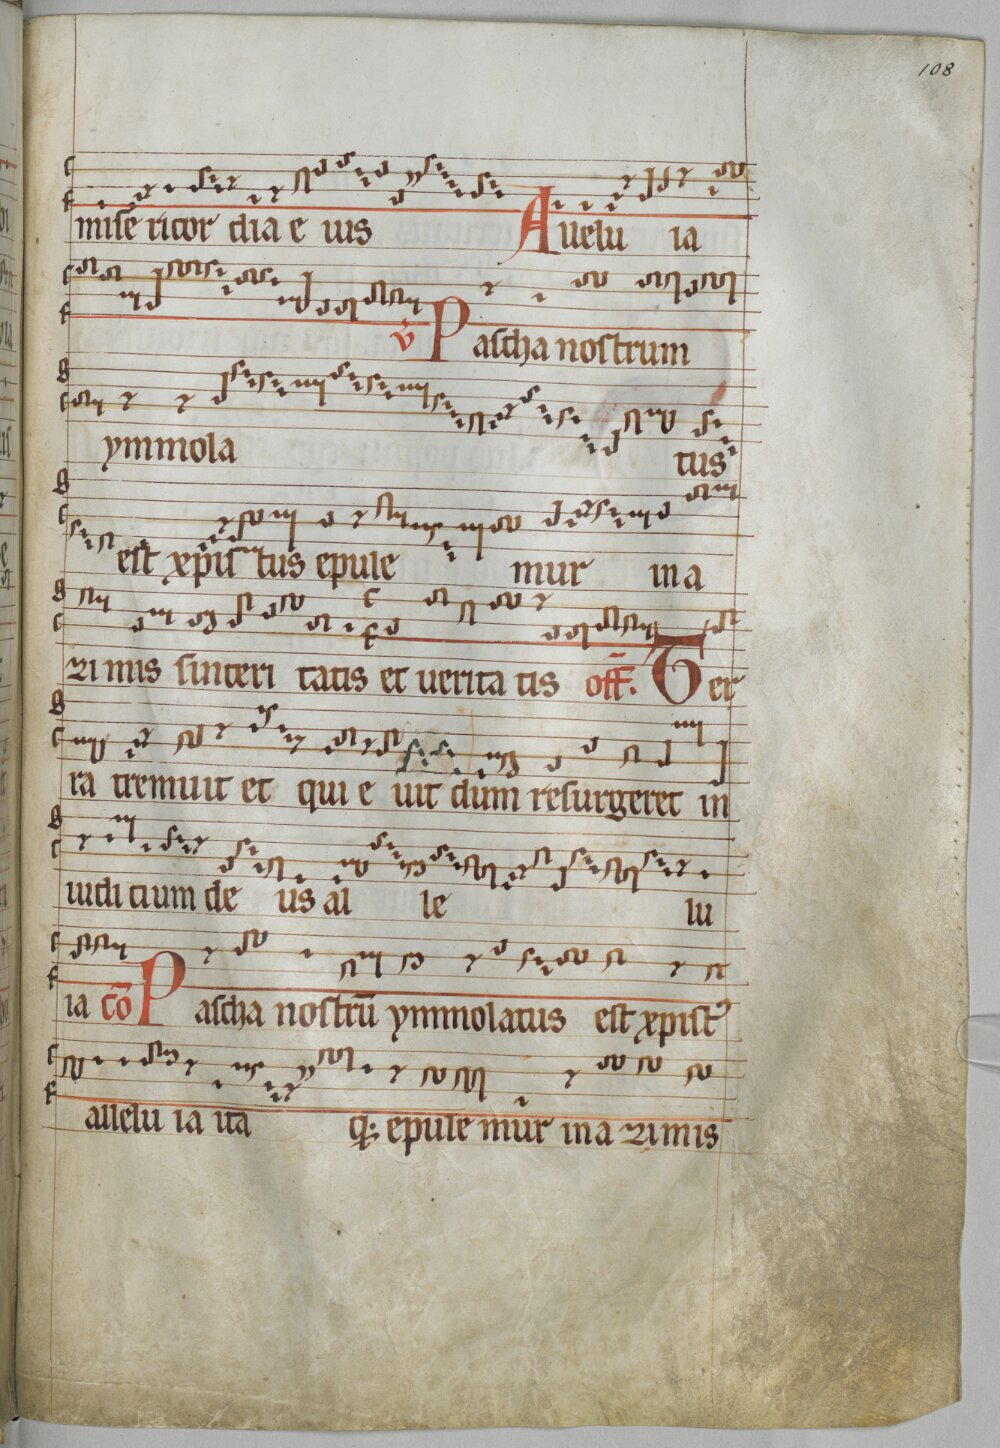 108
mise ricor dia e ius Allelu ia
v̄ Pascha nostrum
ymmola tus
est xpisttus epule mur in a
zi mis sinceri tatis et uerita tis off̄. Ter
ra tremuit et qui e uit dum resurgeret in
iudi cium de us al le lu
ia cō Pascha nostrū ymmolatus est xpist᾽
allelu ia ita q; epule mur in a zimis